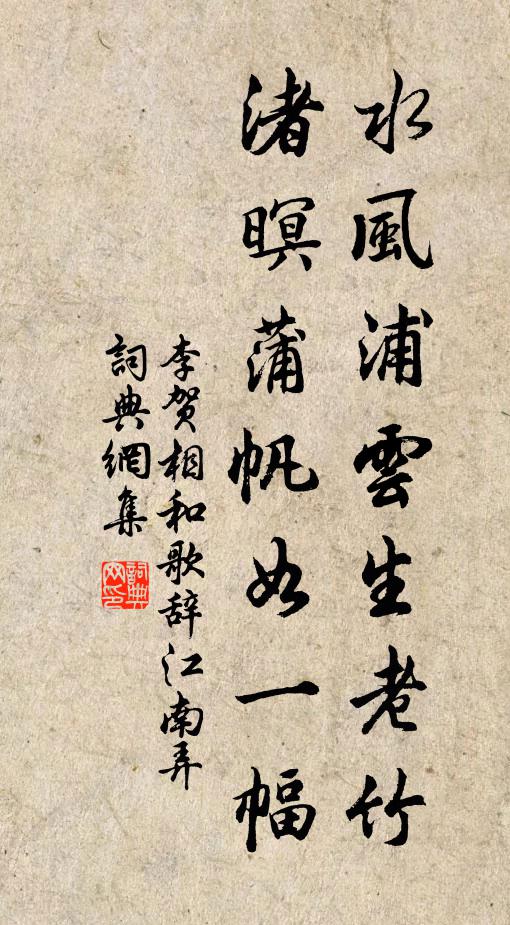 水風浦雲生老竹
渚暝蒲帆如一幅
李賀相和歌辞江南弄
詞典網集
詞典网印